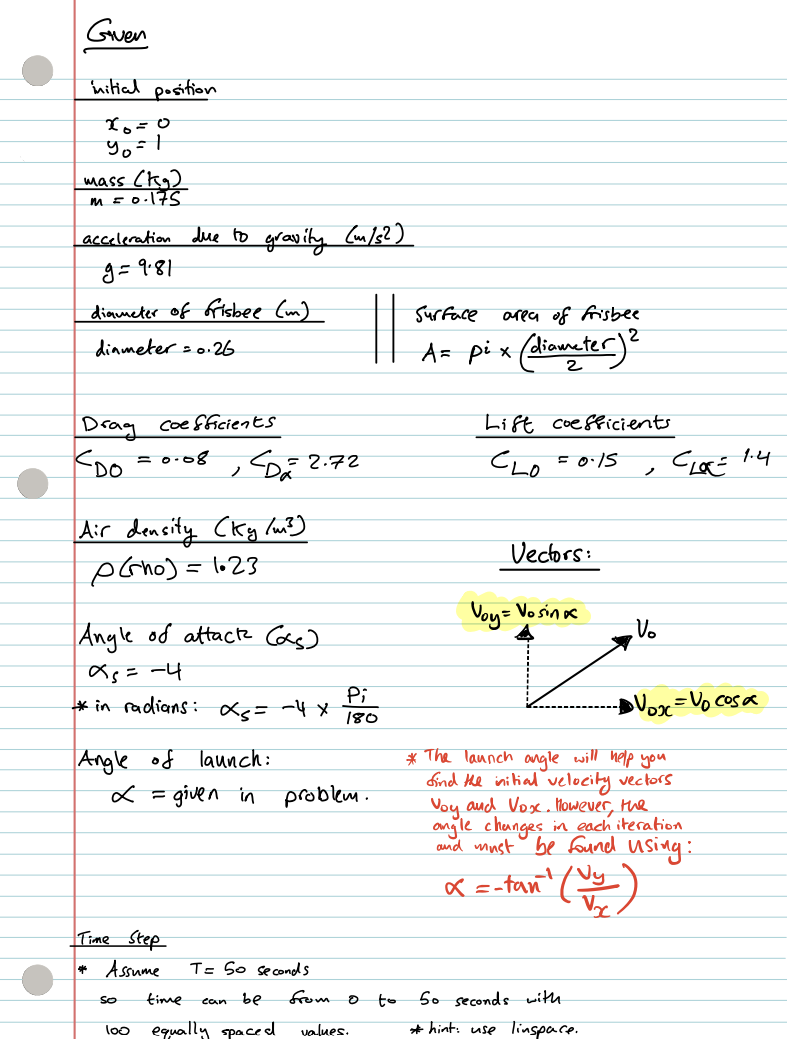 Given
initial position
x₀ = 0
y₀ = 1
mass (Kg)
m = 0.175
acceleration due to gravity (m/s2)
g = 9.81
diameter of frisbee (m)
diameter = 0.26
Surface area of frisbee
A = pi × (diameter/2)²
Drag coefficients
C_D0 = 0.08 , C_Dα = 2.72
Lift coefficients
C_L0 = 0.15 , C_Lα = 1.4
Air density (Kg/m³)
ρ(rho) = 1.23
Vectors:
V₀y = V₀ sin α
V₀
V₀x = V₀ cos α
Angle of attack (αs)
αs = -4
* in radians: αs = -4 × Pi/180
Angle of launch:
α = given in problem.
* The launch angle will help you
find the initial velocity vectors
V₀y and V₀x. However, the
angle changes in each iteration
and must be found using:
α = -tan⁻¹ (Vy/Vx)
Time Step
* Assume T = 50 seconds
so time can be from 0 to 50 seconds with
100 equally spaced values. * hint: use linspace.